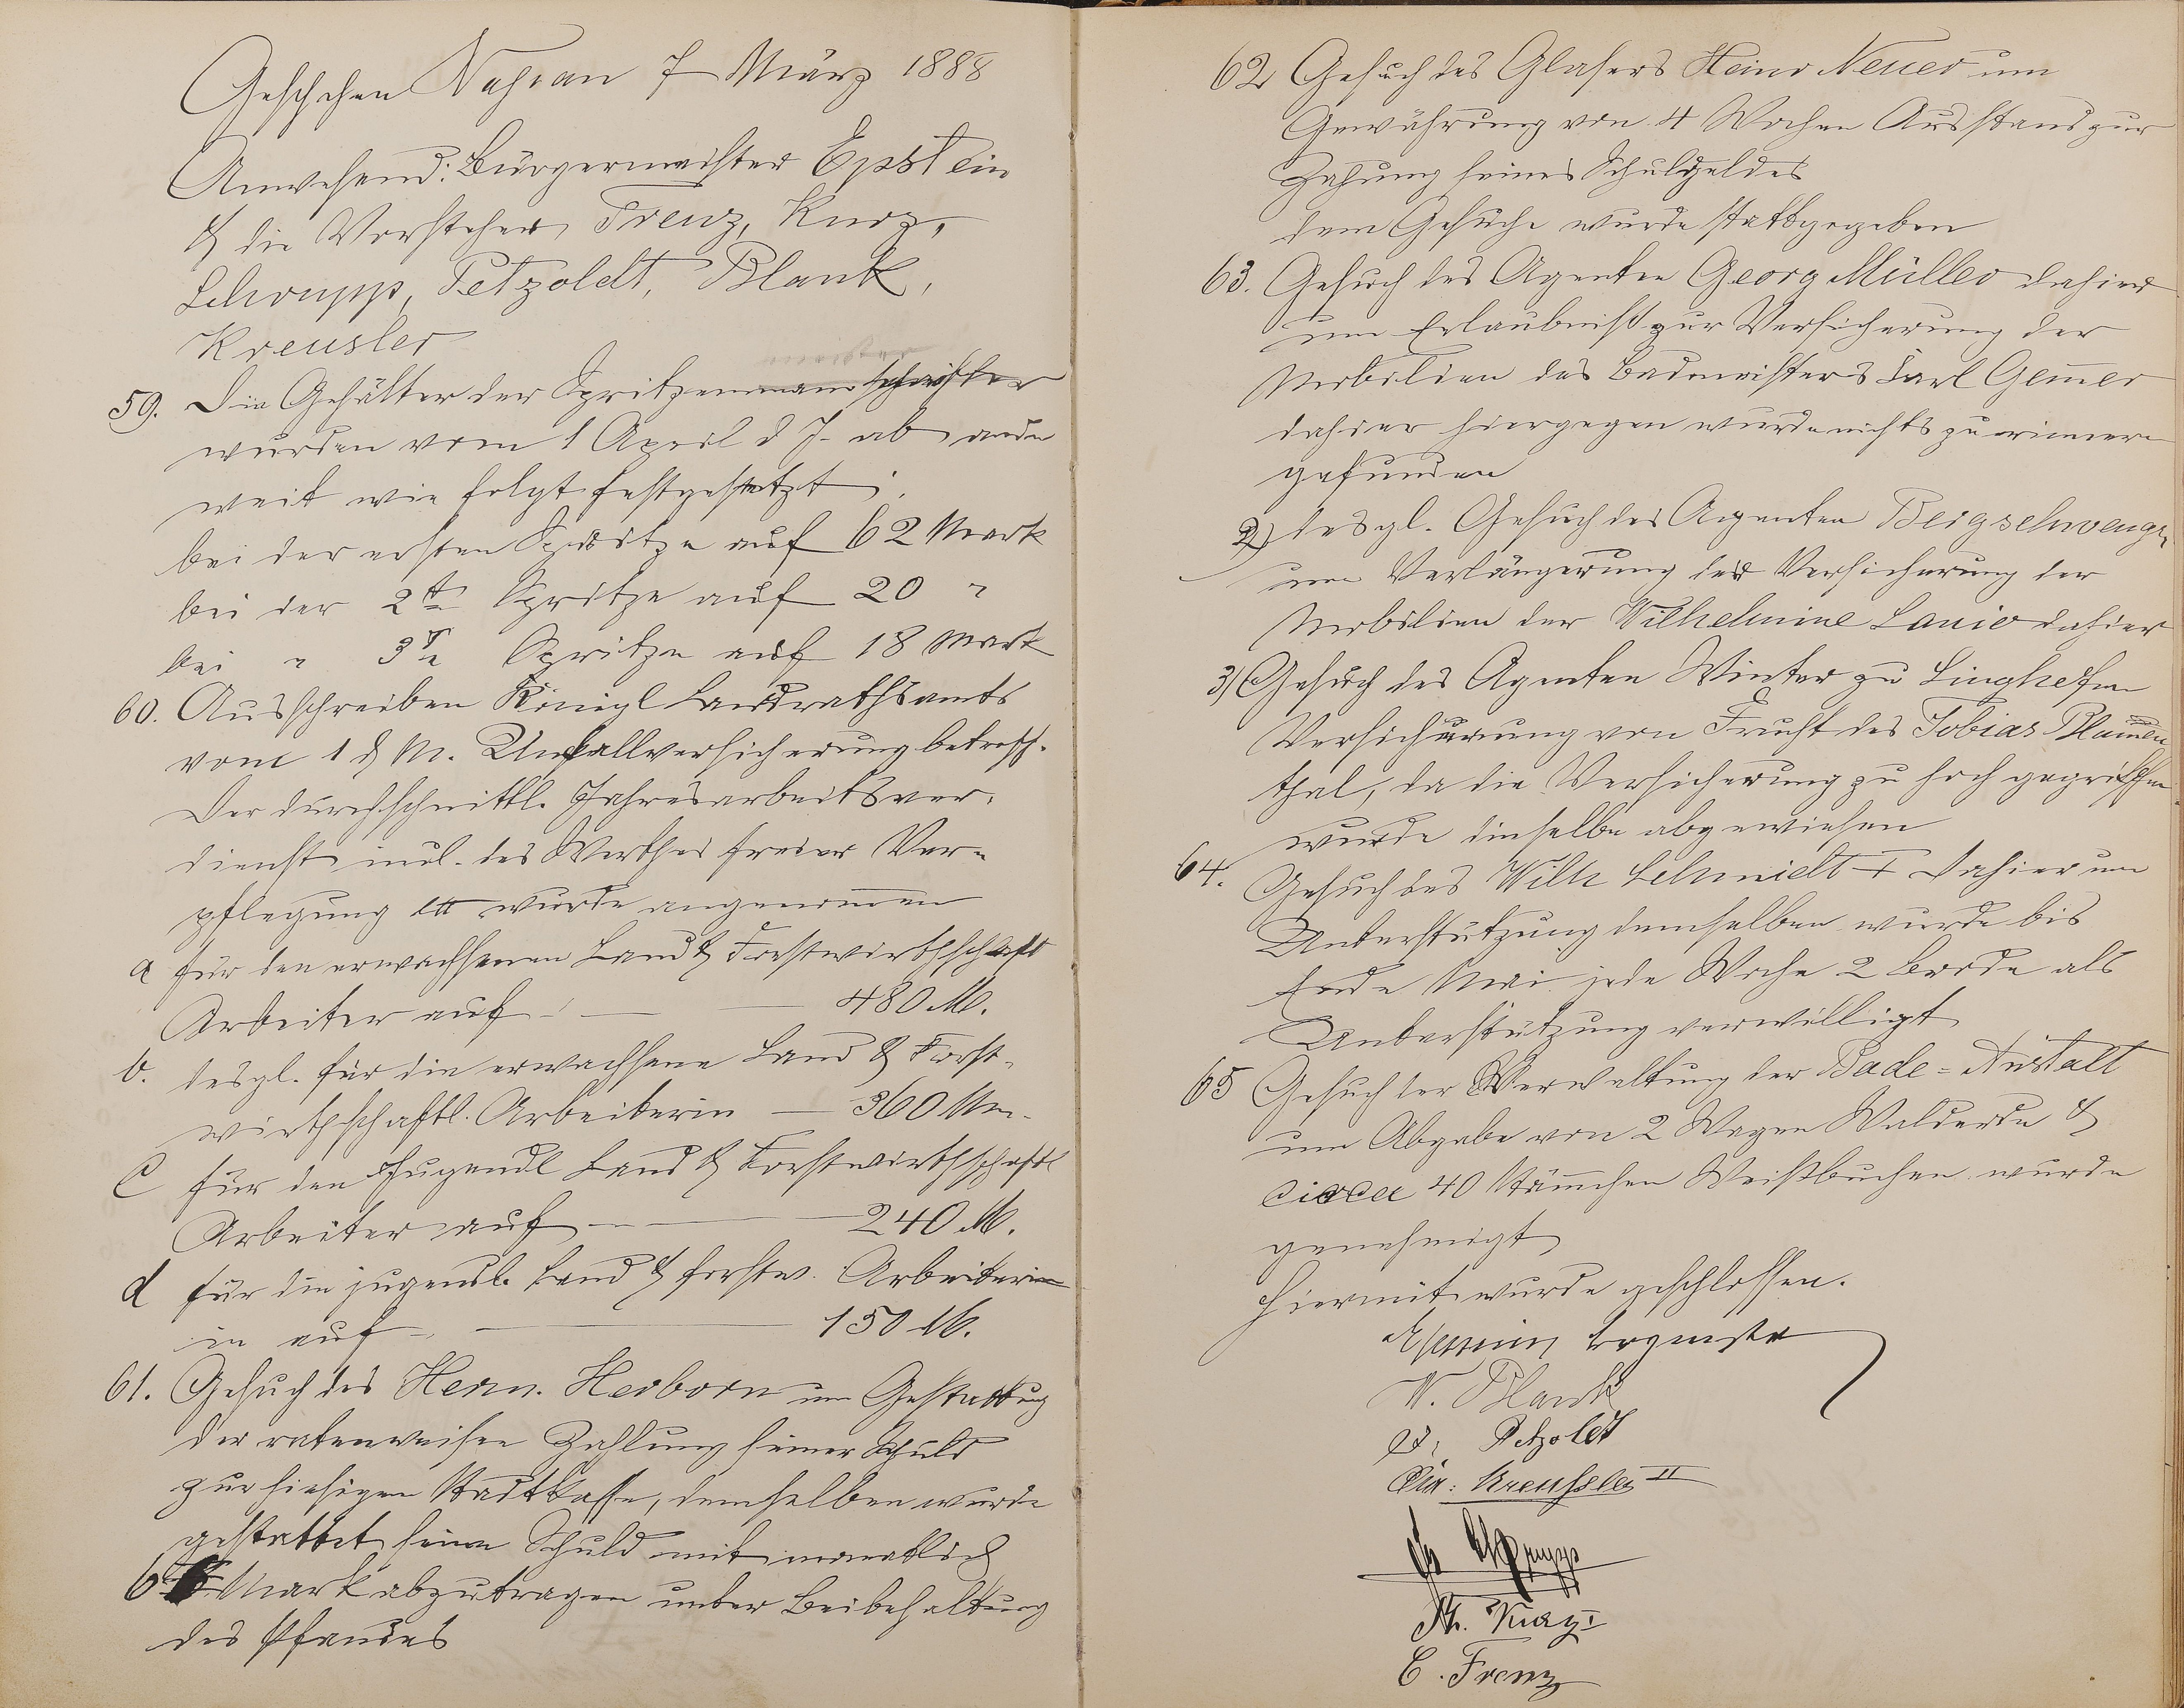 Geschehen Nassau 7 März 1888
Anwesend: Bürgermeister Epstein
& die Vorsteher Trenz, Kurz,
Schrupp, Petzoldt, Blank,
Kreusler
59. Die Gehälter der Spritzen
wurden vom 1 April d J. ab ander
weit wie folgt festgesetzt:
bei der ersten Spritze auf 62 Mark
bei der 2te Spritze auf 20 "
bei " 3te Spritze auf 18 Mark
60. Ausschreiben Königl Landrathsamts
vom 1 d M. Unfallversicherung betreff.
Der durchschnittl. Jahresarbeitsver-
dienst incl. des Werthes freier Ver-
pflegung ett wurde angenommen
a für den erwachsenen Land & Forstwirthschaftl
Arbeiter auf — 480 M.
b. desgl. für die erwachsene Land & Forst-
wirthschaftl. Arbeiterin — 360 M
c für den Jugendl Land & Forstwirthschaftl
Arbeiter auf — 240 M.
d für die jugendl. Land & forstw. Arbeiterin
in auf — 150 M.
61. Gesuch des Herm. Herborn um Gestattung
der ratenweisen Zahlung seiner Schuld
zur hiesigen Stadtkasse, demselben wurde
gestattet seine Schuld mit monatlich
6 Mark abzutragen unter Beibehaltung
des Pfandes
62 Gesuch des Glasers Heinr Neuer um
Gewährung von 4 Wochen Ausstand zur
Zahung seines Schulgeldes
dem Gesuche wurde stattgegeben
63. Gesuch des Agenten Georg Müller dahier
um Erlaubniß zur Versicherung der
Mobilien des Bademeisters Carl Gemer
dahier hiergegen wurde nichts zu erinnern
gefunden
2) desgl. Gesuch des Agenten Bergschwenger
um Verlängerung der Versicherung der
Mobilien der Wilhelmine Lanio dahier
3) Gesuch des Agenten Winter zu Singhofen
Versicherung von Frucht des Tobias Blumen
thal, da die Versicherung zu hoch gegriffen
wurde dieselbe abgewiesen
64. Gesuch des Wilh Schmidt I dahier um
Unterstützung demselben wurde bis
Ende Mai jede Woche 2 Brode als
Unterstützung verwilligt
65 Gesuch der Verwaltung der Bade=Anstalt
um Abgabe von 2 Wagen Walderde &
circa 40 Stämchen Weißbuchen wurde
genehmigt
Hiermit wurde geschlossen.
W. Blank
Petzoldt
Chr: Kreußler II
Schrupp
Ph. Kurz I
C. Trenz